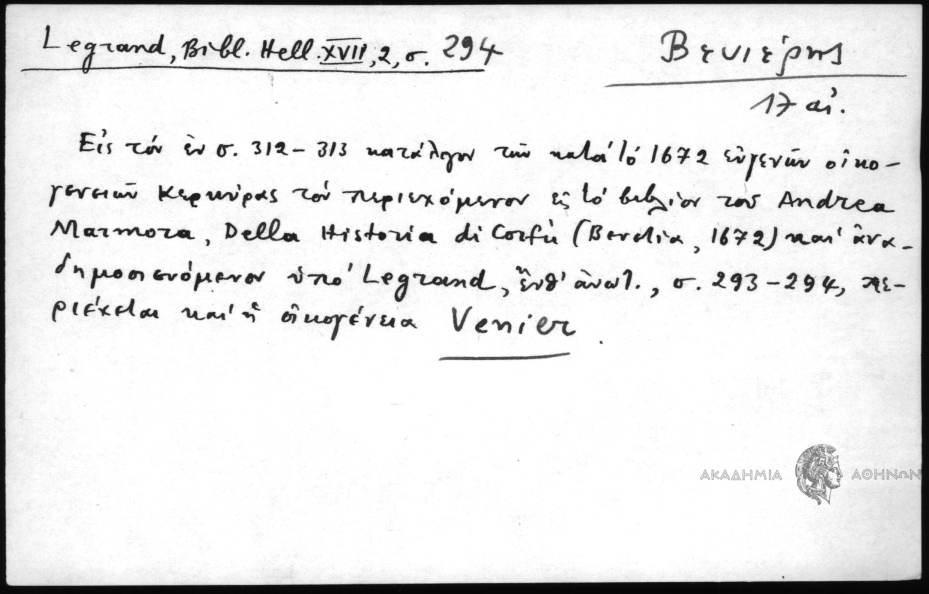 Legrand, Bibl. Hell. XVII, 2, σ. 294
Βενιέρης
17 αἰ.
Εἰς τόν ἐν σ. 312-313 κατάλογον τῶν κατά τό 1672 εὐγενῶν οἰκο-
γενειῶν Κερκύρας τόν περιεχόμενον εἰς τό βιβλίον τοῦ Andrea
Marmora, Della Historia di Corfù (Βενετία, 1672) καί ἀνα-
δημοσιευόμενον ὑπό Legrand, ἔνθ' ἀνωτ., σ. 293-294, πε-
ριέχεται καί ἡ οἰκογένεια Venier.
ΑΚΑΔΗΜΙΑ ΑΘΗΝΩΝ